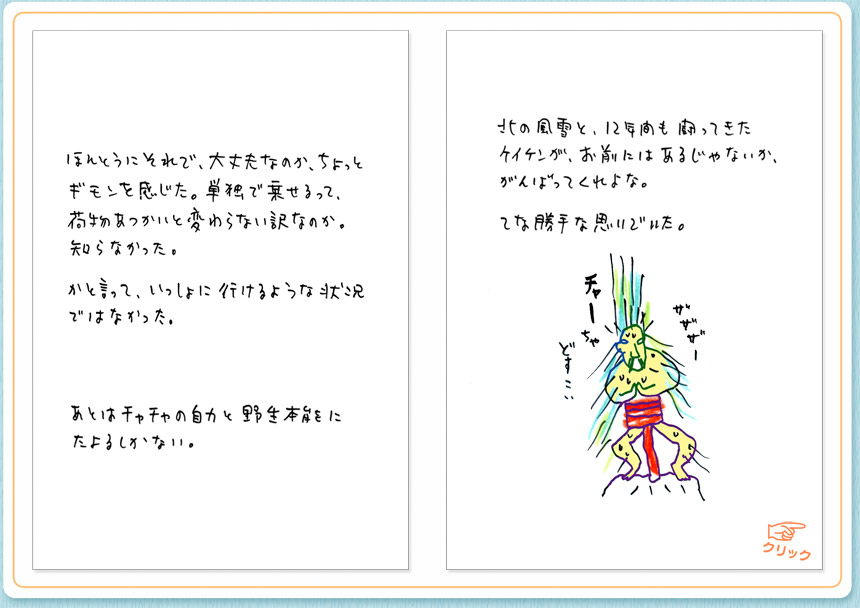 ほんとうにそれで、大丈夫なのか、ちょっと
ギモンを感じた。単独で乗せるって、
荷物あつかいと変わらない訳なのか。
知らなかった。
かと言って、いっしょに行けるような状況
ではなかった。
あとはチャチャの自力と野生本能をに
たよるしかない。
北の風雪と、12年間も闘ってきた
ケイケンが、お前にはあるじゃないか、
がんばってくれよな。
てな勝手な思いでいた。
チャーちゃ
どすこい
ザザザー
クリック